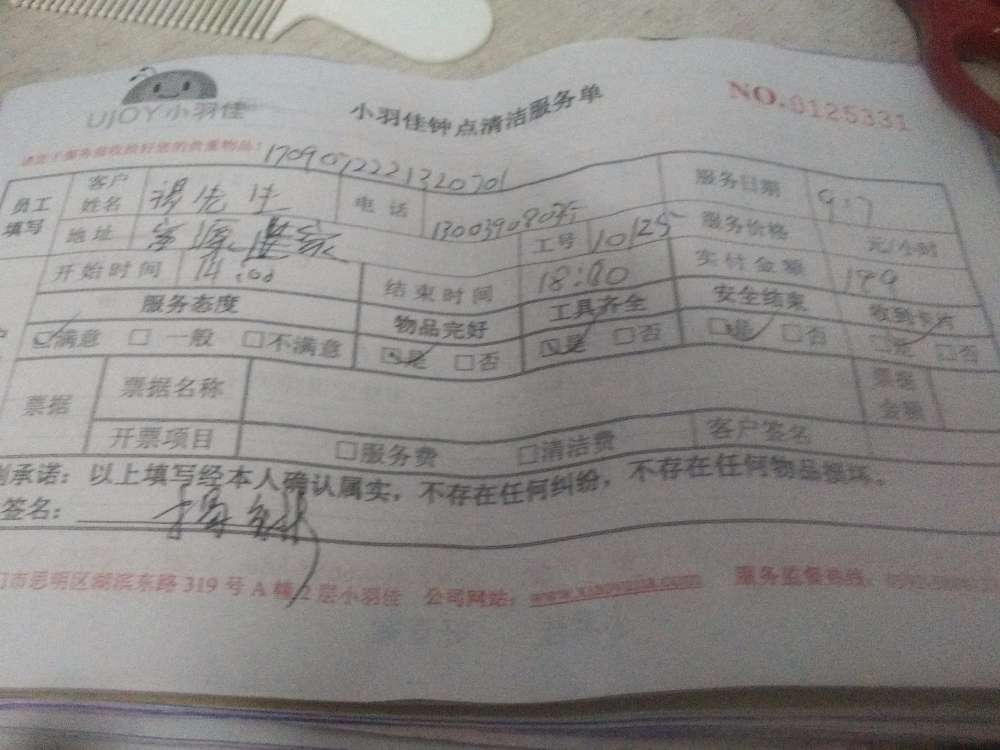 UJOY小羽佳
小羽佳钟点清洁服务单
NO.0125331
请您于服务前收放好您的贵重物品!
员工填写 客户姓名 先生 电话 服务日期 9.7
地址 工号 10125 服务价格 元/小时
开始时间 14:00 结束时间 18:00 实付金额 199
服务态度 物品完好 工具齐全 安全结束 收到卡片
☑满意 □一般 □不满意 ☑是 □否 ☑是 □否 ☑是 □否 ☑是 □否
票据 票据名称 票据金额
开票项目 □服务费 □清洁费 客户签名
承诺:以上填写经本人确认属实,不存在任何纠纷,不存在任何物品损坏。
签名:
门市思明区湖滨东路319号A幢2层小羽佳 公司网站: 服务监督热线: